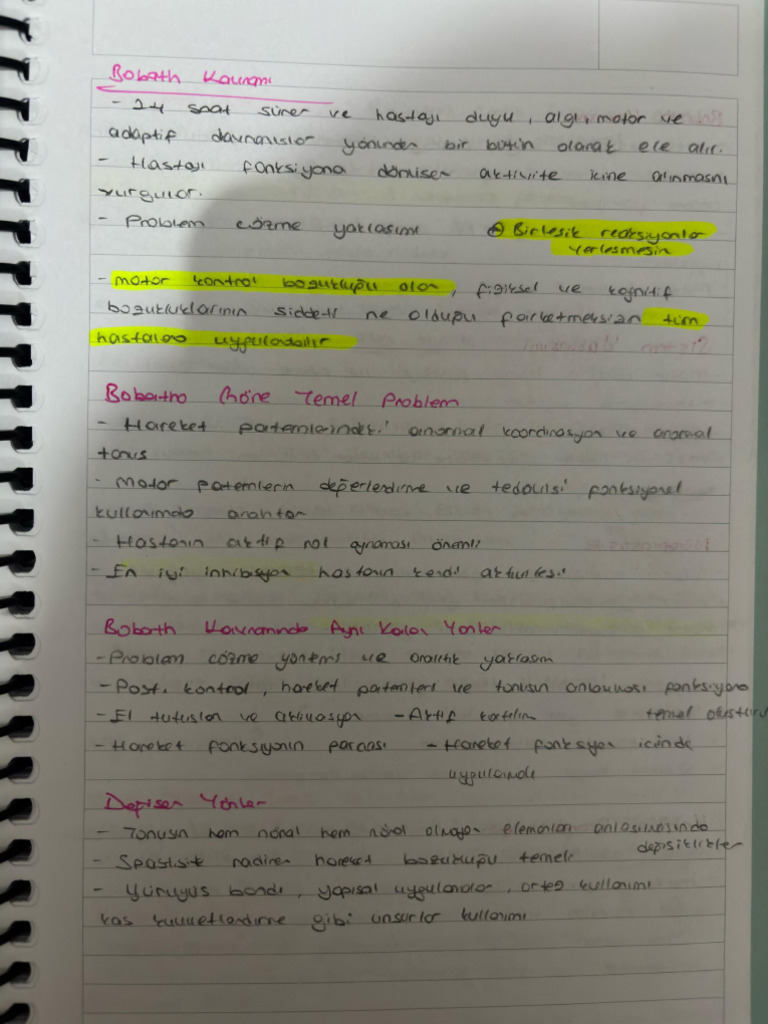 Bobath Kavramı
- 24 saat sürer ve hastayı duyu, algı, motor ve
adaptif davranışlar yönünden bir bütün olarak ele alır.
- Hastayı fonksiyona dönüşen aktivite içine alınmasını
vurgular.
- Problem çözme yaklaşımı → Birleşik reaksiyonlar
yerleşmesin
- motor kontrol bozukluğu olan, fiziksel ve kognitif
bozukluklarının şiddeti ne olduğu farketmeksizin tüm
hastalara uygulanabilir
Bobatha Göre Temel Problem
- Hareket paternlerindeki anormal koordinasyon ve anormal
tonus
- Motor paternlerin değerlendirme ve tedavisi fonksiyonel
kullanımda anahtar
- Hastanın aktif rol oynaması önemli
- En iyi inhibisyon hastanın kendi aktivitesi
Bobath Kavramında Aynı Kalan Yönler
- Problem çözme yöntemi ve analitik yaklaşım
- Post. kontrol, hareket paternleri ve tonusun anlaşılması fonksiyona
temel oluşturur
- El tutuşları ve aktivasyon - Aktif katılım
- Hareket fonksiyonun parçası - Hareket fonksiyon içinde
uygulandı
Değişen Yönler
- Tonusun hem nöral hem nöral olmayan elemanları anlaşılmasında
değişiklikler
- Spastisite nadiren hareket bozukluğu temeli
- Yürüyüş bandı, yapısal uygulamalar, ortez kullanımı
kas kuvvetlendirme gibi unsurlar kullanımı